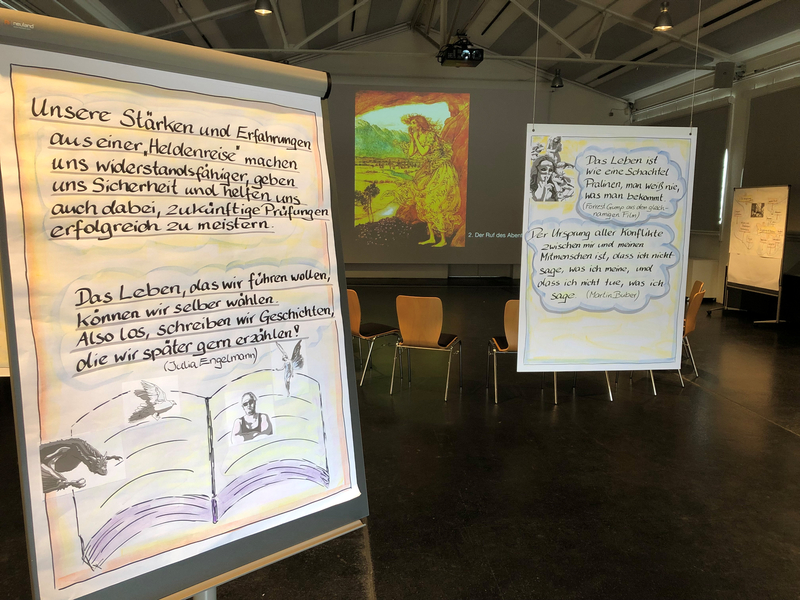 neuland
Unsere Stärken und Erfahrungen
aus einer „Heldenreise" machen
uns widerstandsfähiger, geben
uns Sicherheit und helfen uns
auch dabei, zukünftige Prüfungen
erfolgreich zu meistern.
Das Leben, das wir führen wollen,
können wir selber wählen.
Also los, schreiben wir Geschichten,
die wir später gern erzählen!
(Julia Engelmann)
2. Der Ruf des Aben
Das Leben ist
wie eine Schachtel
Pralinen, man weiß nie,
was man bekommt.
(Forrest Gump aus dem gleich-
namigen Film)
Der Ursprung aller Konflikte
zwischen mir und meinen
Mitmenschen ist, dass ich nicht
sage, was ich meine, und
dass ich nicht tue, was ich
sage. (Martin Buber)